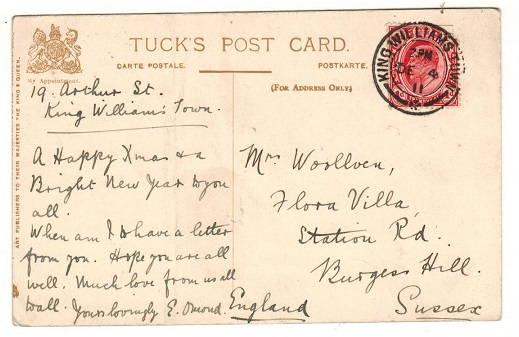 TUCK'S POST CARD.
By Appointment.
CARTE POSTALE.
POSTKARTE.
(FOR ADDRESS ONLY)
ART PUBLISHERS TO THEIR MAJESTIES THE KING & QUEEN.
KING WILLIAMS TOWN
2 PM
DE 4
11
19. Arthur St.
King William's Town.
A Happy Xmas & a
Bright New Year to you
all.
When am I to have a letter
from you. Hope you are all
well. Much love from us all
to all. Yours lovingly E. Omond.
Mrs Woollven,
Flora Villa
Station Rd.
Burgess Hill.
Sussex
England